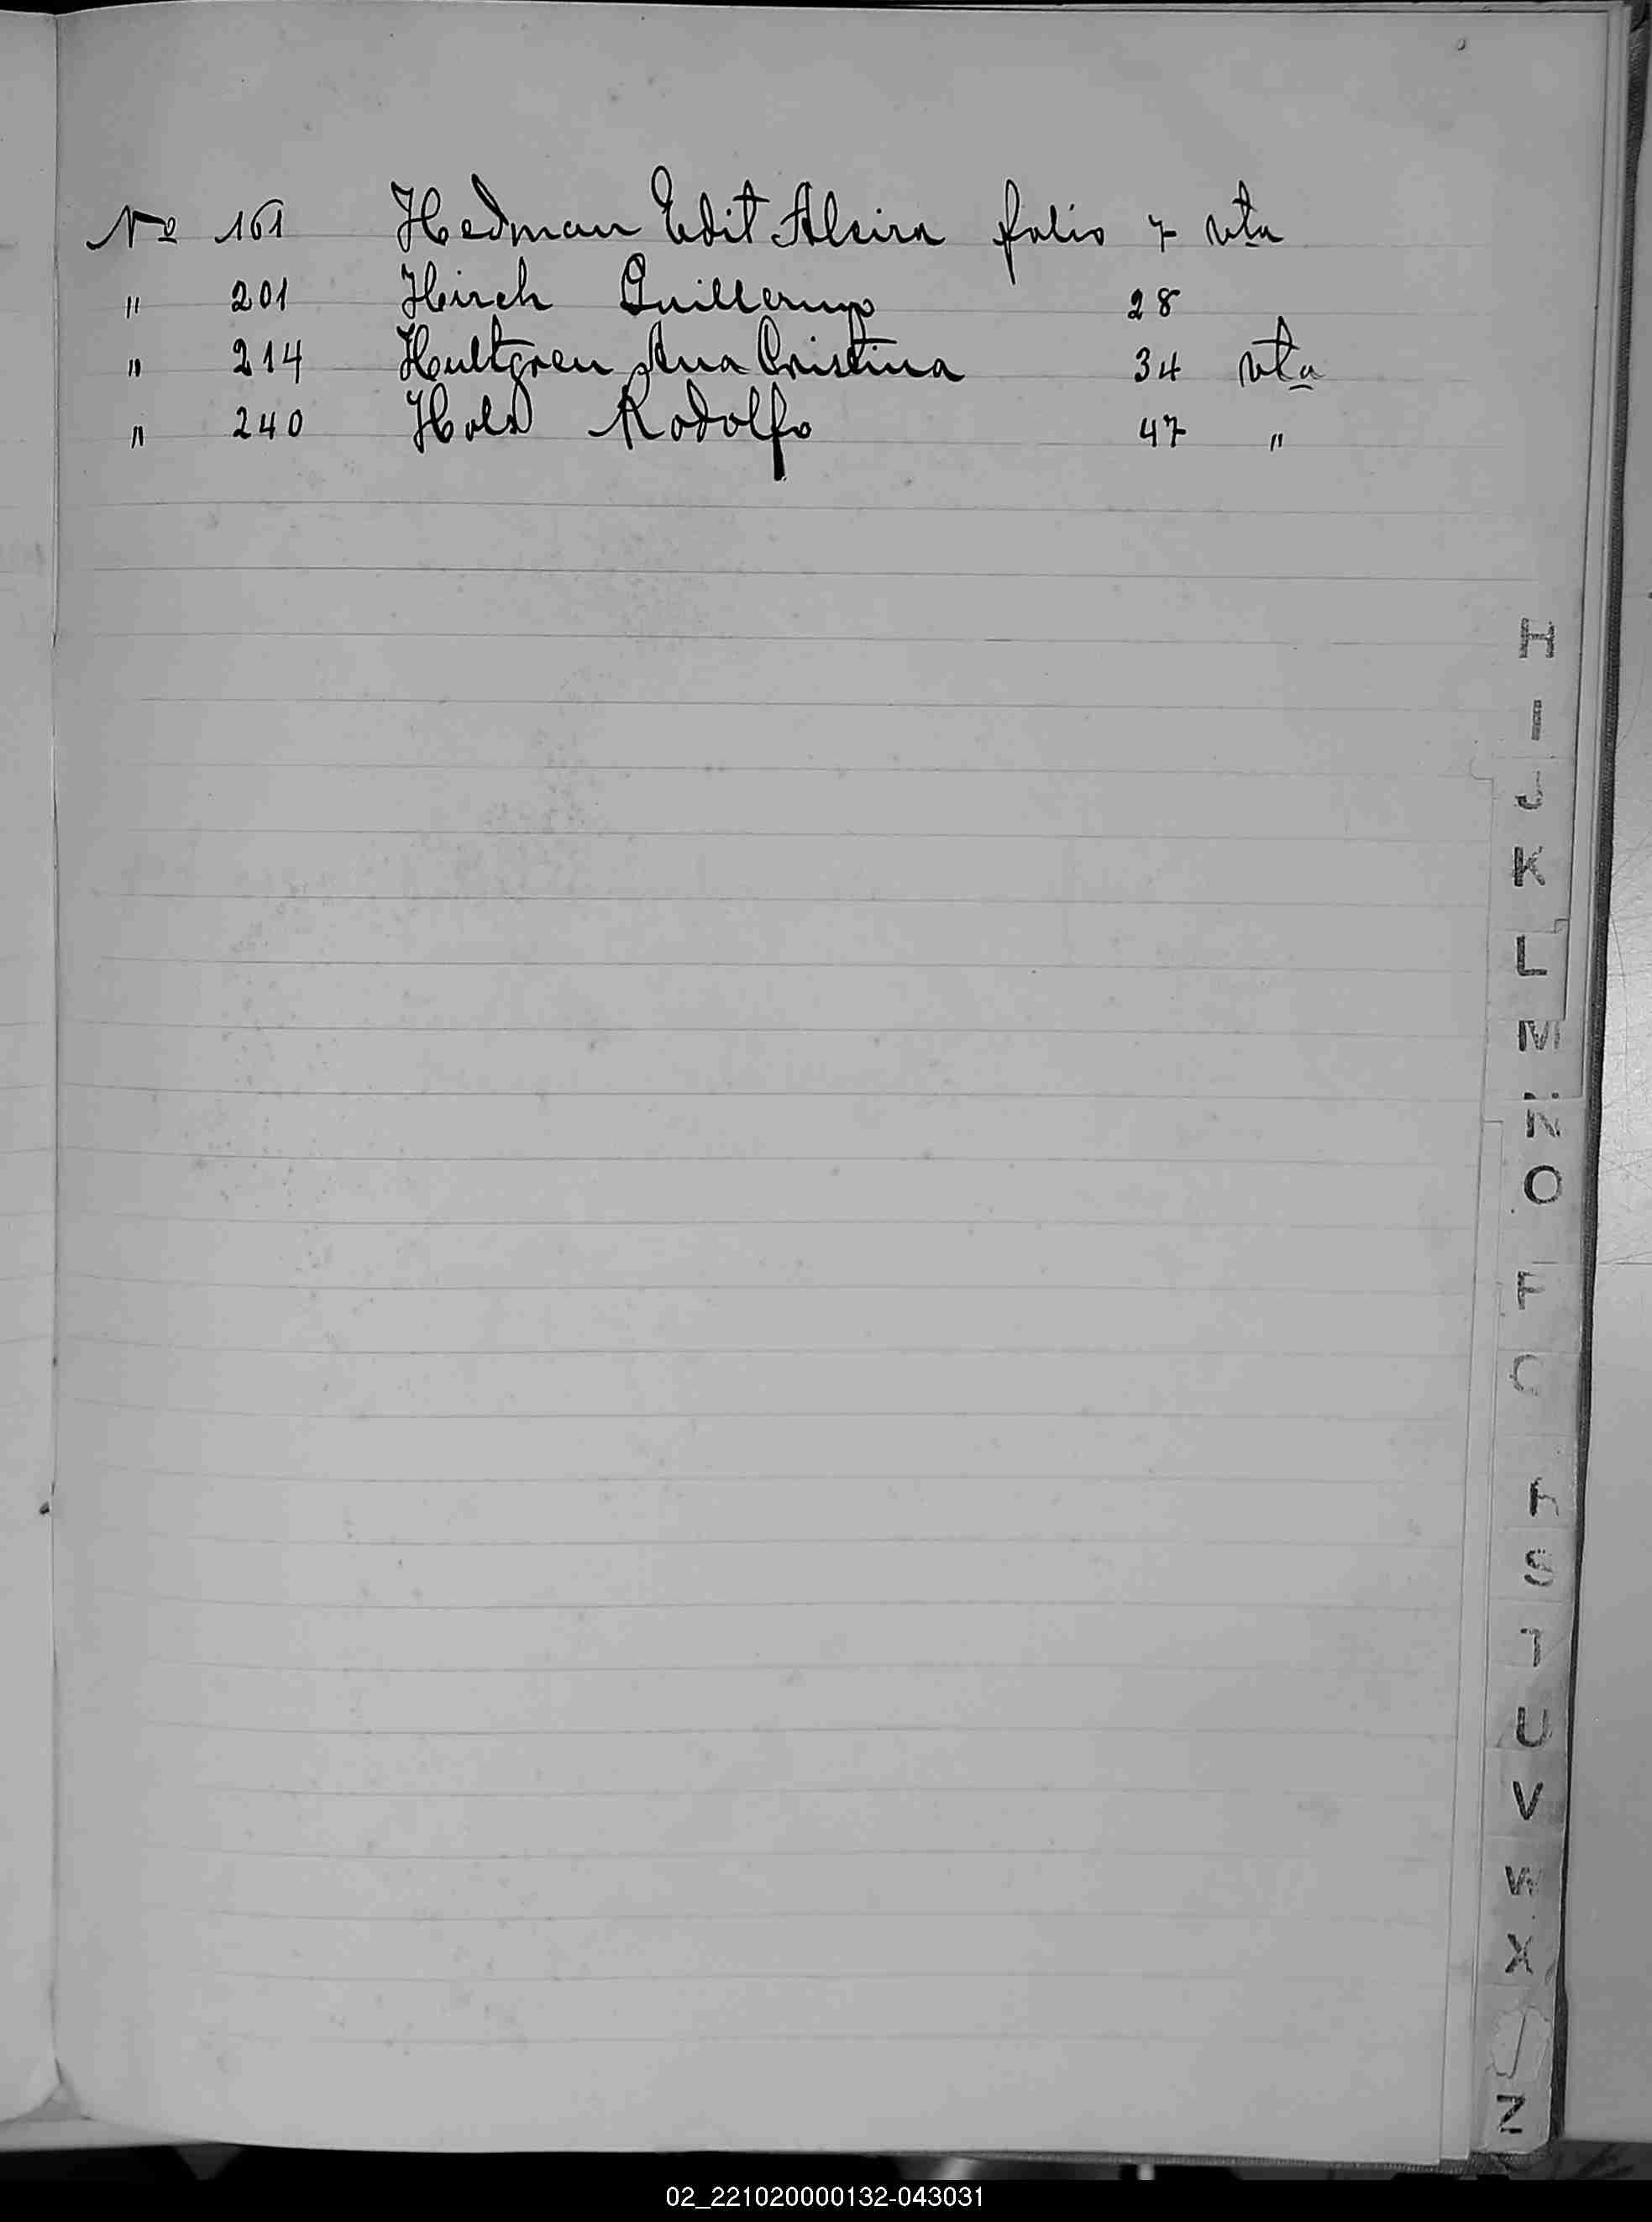 Nº 161 Hedman Edit Alcira folio 7 vta
" 201 Hirch Guillermo 28
" 214 Hultgren Ana Cristina 34 vta
" 240 Rodolfo 47 "
H
I
J
K
L
M
N
O
S
T
U
V
W
X
Z
02_221020000132-043031